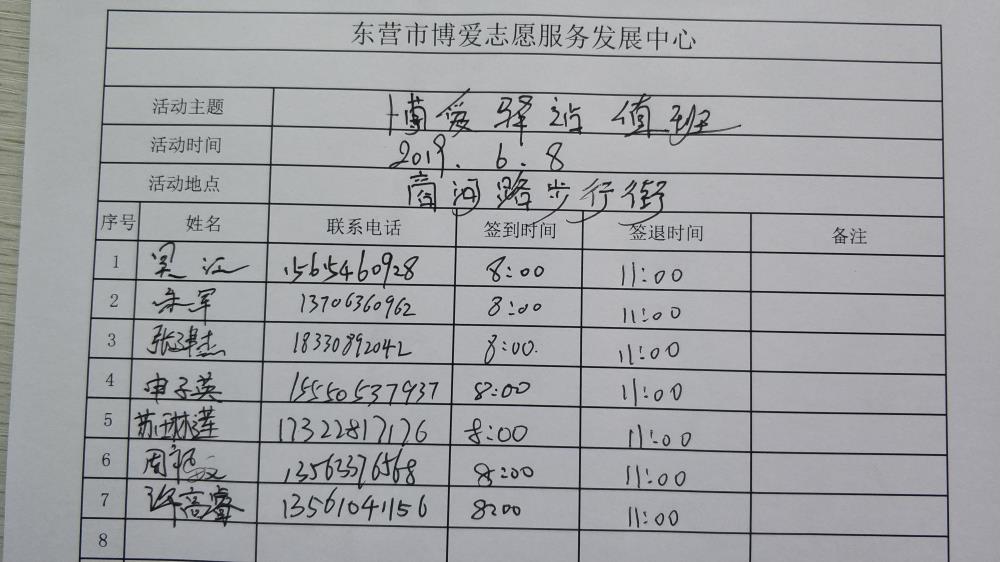 东营市博爱志愿服务发展中心
活动主题 博爱驿站值班
活动时间 2019.6.8
活动地点 商河路步行街
序号 姓名 联系电话 签到时间 签退时间 备注
1 吴江 15615460928 8:00 11:00
2 朱军 13706360962 8:00 11:00
3 张建杰 18330892042 8:00. 11:00
4 申子英 15550537937 8:00 11:00
5 苏琳莲 17322817176 8:00 11:00
6 周 13563376568 8:00 11:00
7 许高睿 13561041156 8:00 11:00
8